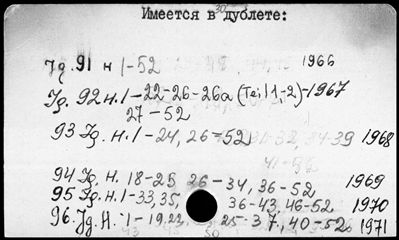 Имеется в дублете:
Jg. 91 н 1-52 1966
Jg. 92 н. 1-22-26-26a (Teil 1,-2)-1967
27-52
93 Jg. н. 1-24, 26-52 1968
94 Jg. н. 18-25 26-34, 36-52 1969
95 Jg. н. 1-33, 35, 36-43, 46-52 1970
96. Jg. н. 1-19, 22, 25-37, 40-52 1971